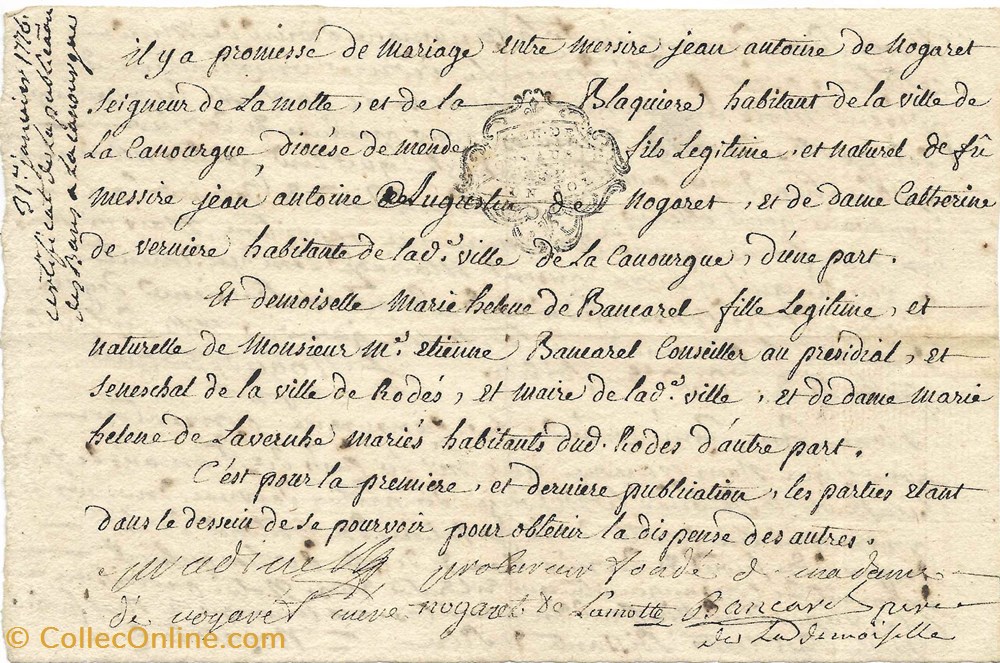 31e janvier 1776.
certificat de la publication
des Bans a la canourgue
il y a promesse de mariage entre messire jean antoine de Nogaret
seigneur de Lamotte, et de la Blaquiere habitant de la ville de
La Canourgue, diocése de mende fils Legitime, et naturel de fû
messire jean antoine Augustin de Nogaret, et de dame Catherine
de verniere habitante de lad.e ville de La Canourgue, d'une part.
Et demoiselle marie helene de Bancarel fille Legitime, et
naturelle de Monsieur m.e Etienne Bancarel Conseiller au presidial, et
seneschal de la ville de Rodés, et maire de lad.e ville, et de dame marie
helene de Lavernhe mariés habitants dud. Rodes d'autre part.
C'est pour la premiere, et derniere publication, les parties etant
dans le dessein de se pourvoir pour obtenir la dispense des autres.
procureur fondé de madame
de nogaret mere nogaret de Lamotte Bancarel pere
de La demoiselle
© CollecOnline.com